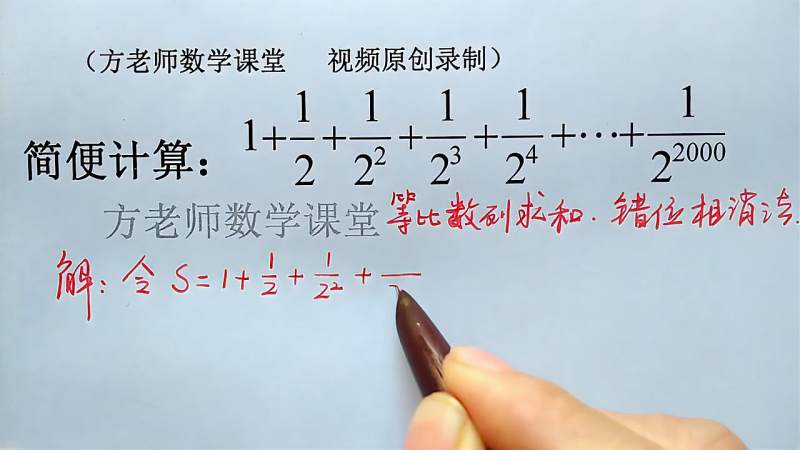 （方老师数学课堂 视频原创录制）
简便计算：1+1/2+1/2²+1/2³+1/2⁴+…+1/2²⁰⁰⁰
方老师数学课堂 等比数列求和.错位相消法.
解：令 S=1+1/2+1/2²+